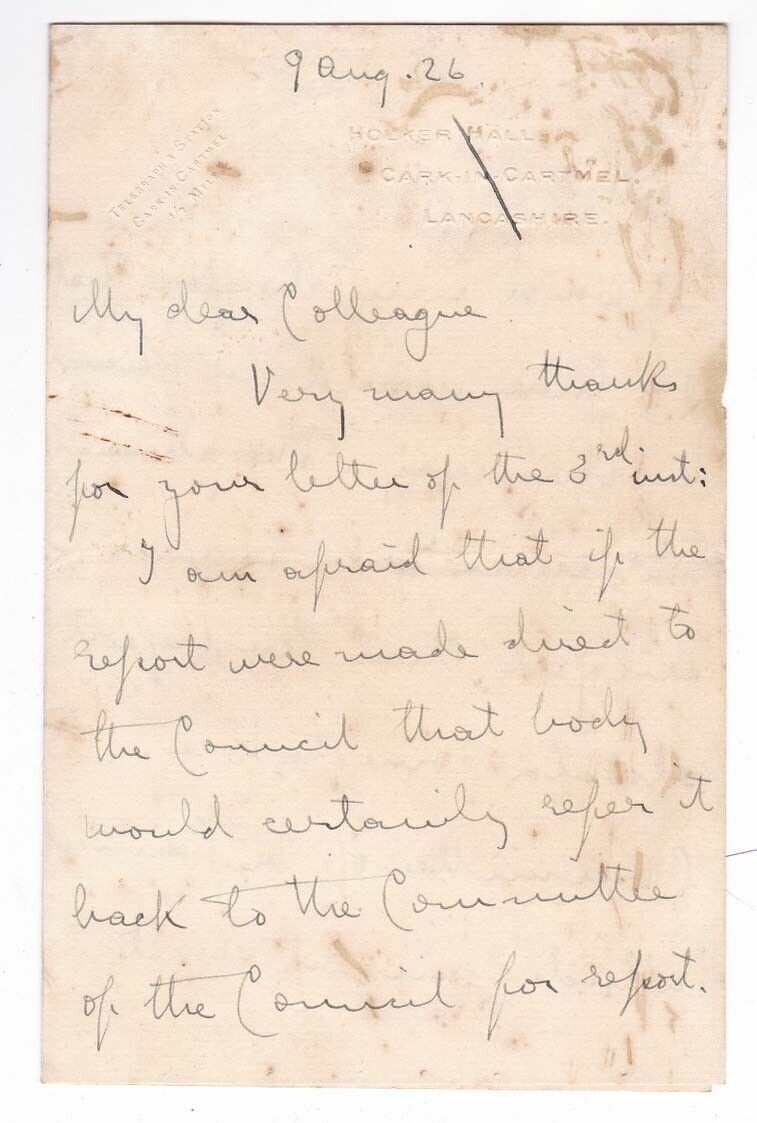 9 Aug. 26.
TELEGRAPH & STATION
CARK-IN-CARTMEL
1/2 MILE
HOLKER HALL,
CARK-IN-CARTMEL.
LANCASHIRE.
My dear Colleague
Very many thanks
for your letter of the 3rd inst:
I am afraid that if the
report were made direct to
the Council that body
would certainly refer it
back to the Committee
of the Council for report.